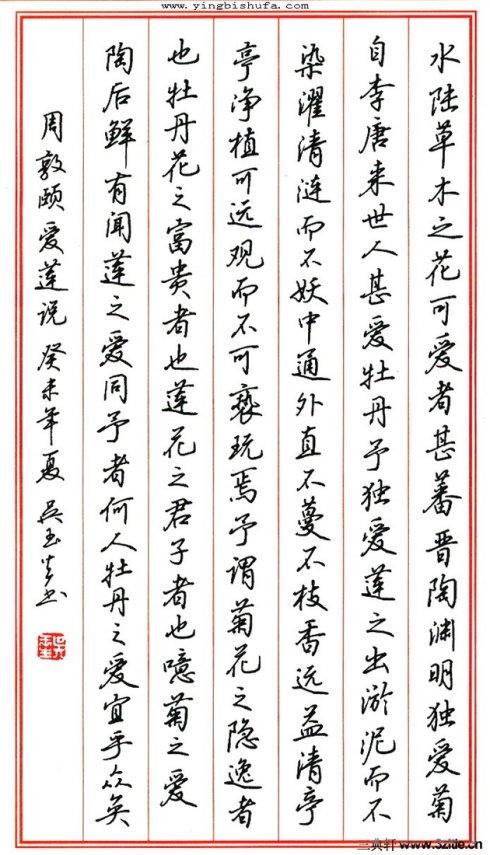 www.yingbishufa.com
水陆草木之花可爱者甚蕃晋陶渊明独爱菊
自李唐来世人甚爱牡丹予独爱莲之出淤泥而不
染濯清涟而不妖中通外直不蔓不枝香远益清亭
亭净植可远观而不可亵玩焉予谓菊花之隐逸者
也牡丹花之富贵者也莲花之君子者也噫菊之爱
陶后鲜有闻莲之爱同予者何人牡丹之爱宜乎众矣
周敦颐爱莲说癸未年夏吴玉生书
三典轩 www.32ide.cn